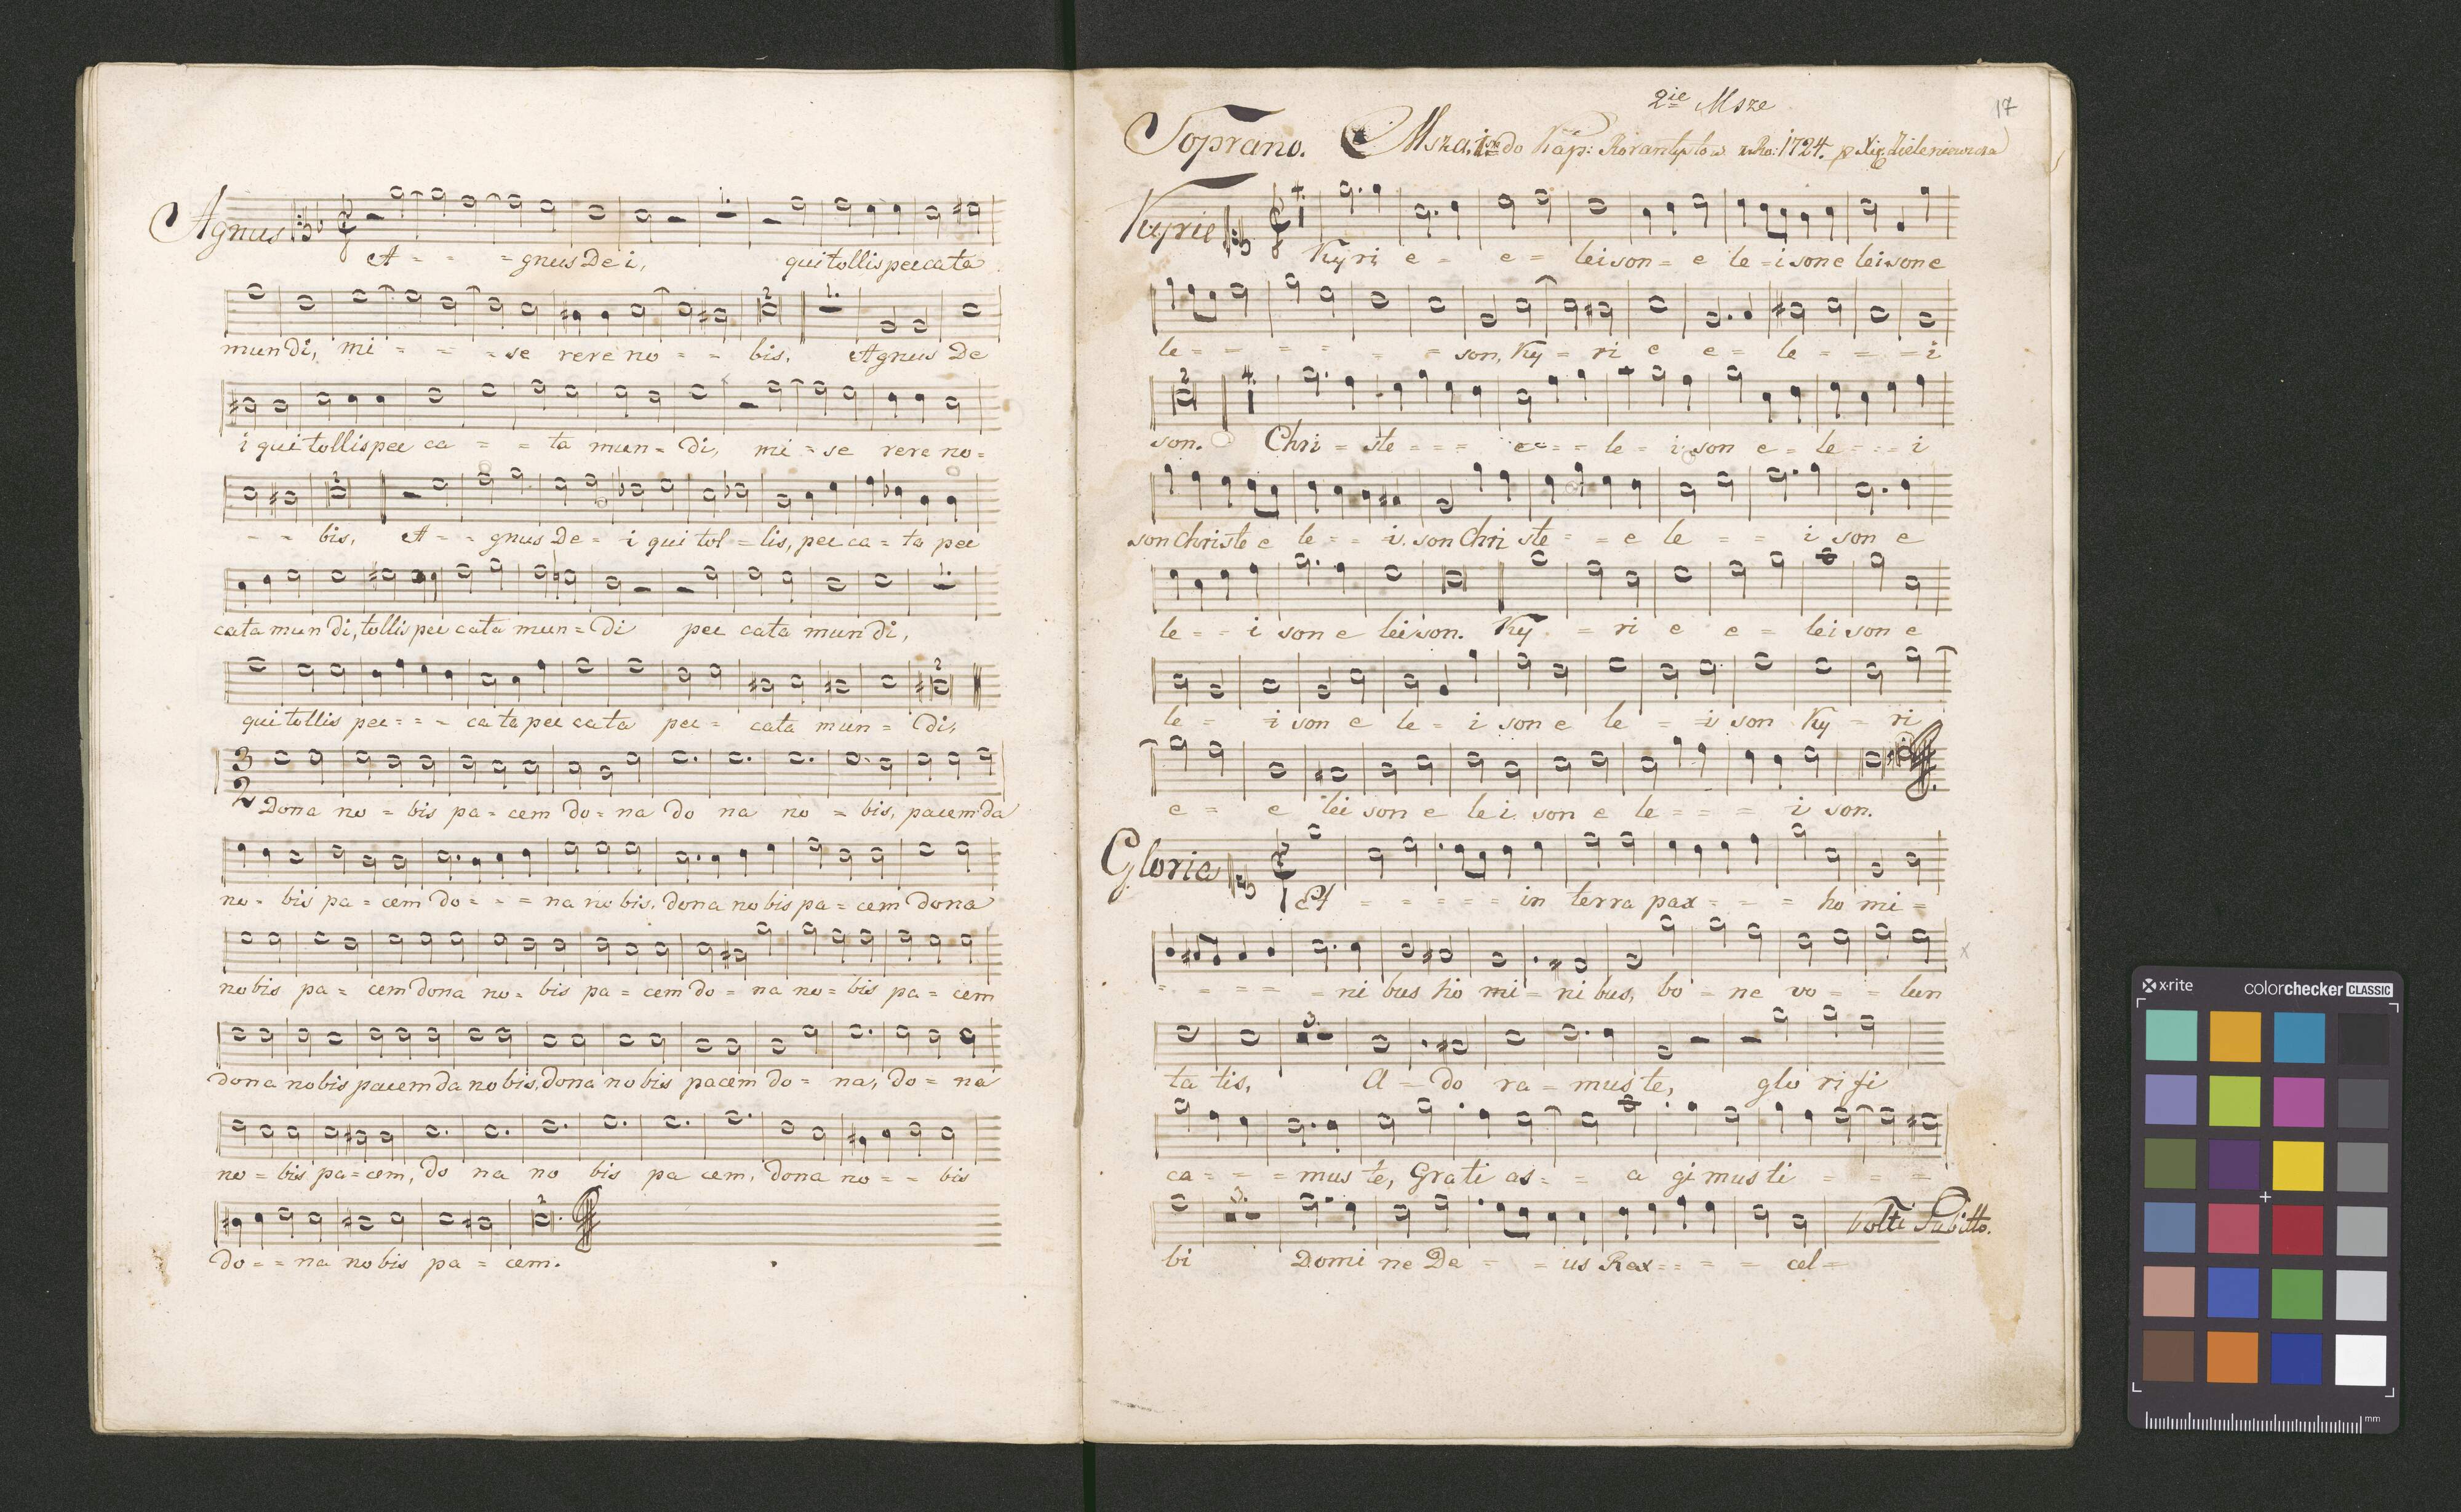 Agnus
A - - = gnus Dei, qui tollis peccata
mundi, mi = = = se rere no = = bis. Agnus De
i qui tollis pec ca = = ta mun = di, mi = se rere no =
= = bis, A = = gnus De = i qui tol = lis, pec ca = ta pec
cata mun di, tollis pec cata mun = di pec cata mundi,
qui tollis pec = = = ca ta pec cata pec = cata mun = di,
3
2
Dona no = bis pa = cem do = na do na no = bis, pacem da
no = bis pa = cem do = = = na no bis. dona nobis pa = cem dona
nobis pa = cem dona no = bis pa = cem do = na no = bis pa = cem
dona nobis pacem da nobis, dona nobis pacem do = na, do = na
no = bis pa = cem, do na no bis pa cem, dona no = = bis
do = = na nobis pa = cem.
2ie Msze
17
Soprano. Msza 1 do Kap: Rorantystow z Ro: 1724.
Kyrie
Kyri e = e = leison = e le = i son e leison e
le = = = = = = son, Ky = ri e e = le = = = i
son. Chri = ste = = = e = = le = i son e = le = = = i
son Christe e le = = = i. son Chri ste = = e le = = i son e
le = = i son e leison. Ky = ri e e = lei son e
le = i son e le = i son e le = i son Ky = ri
e = e lei son e lei son e le = = = i son.
Gloria
Et = = = = = in terra pax = = = ho mi =
= = = = = ni bus ho mi = ni bus, bo = ne vo = = lun
ta tis, A = do ra = mus te, glo ri fi
ca = = = mus te, Grati as = = a gi mus ti = = =
bi Domi ne De = = us Rex = = = = cel =
Volti Subitto.
x
x·rite
colorchecker CLASSIC
mm